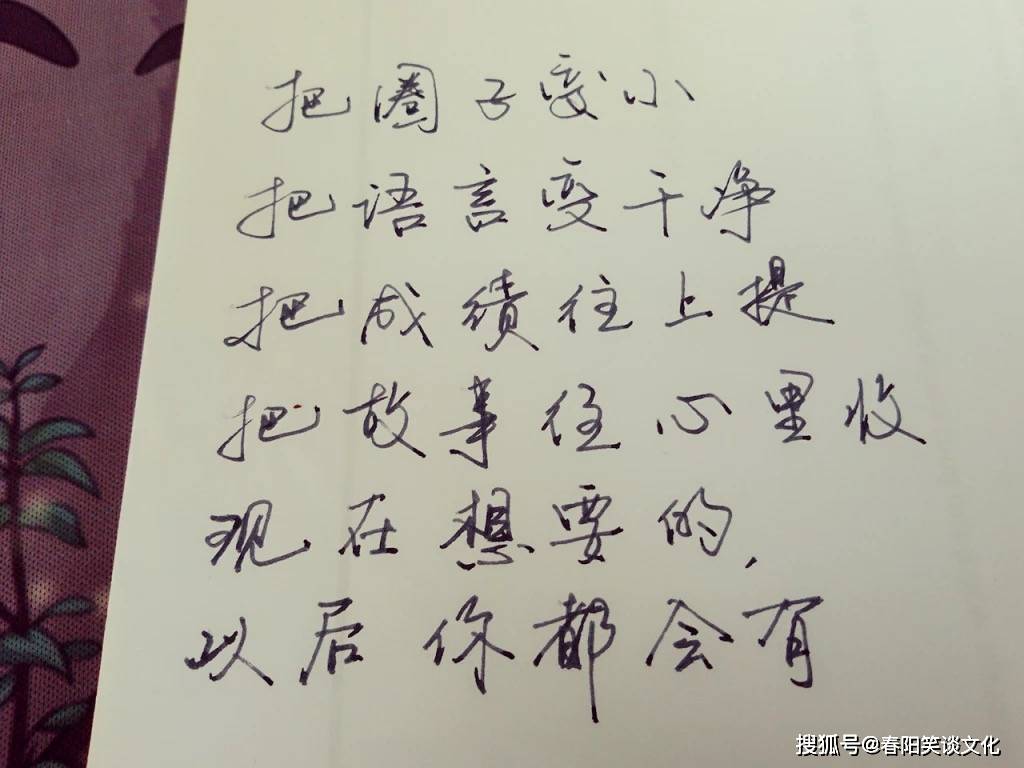 把圈子变小
把语言变干净
把成绩往上提
把故事往心里收
现在想要的,
以后你都会有
搜狐号@春阳笑谈文化